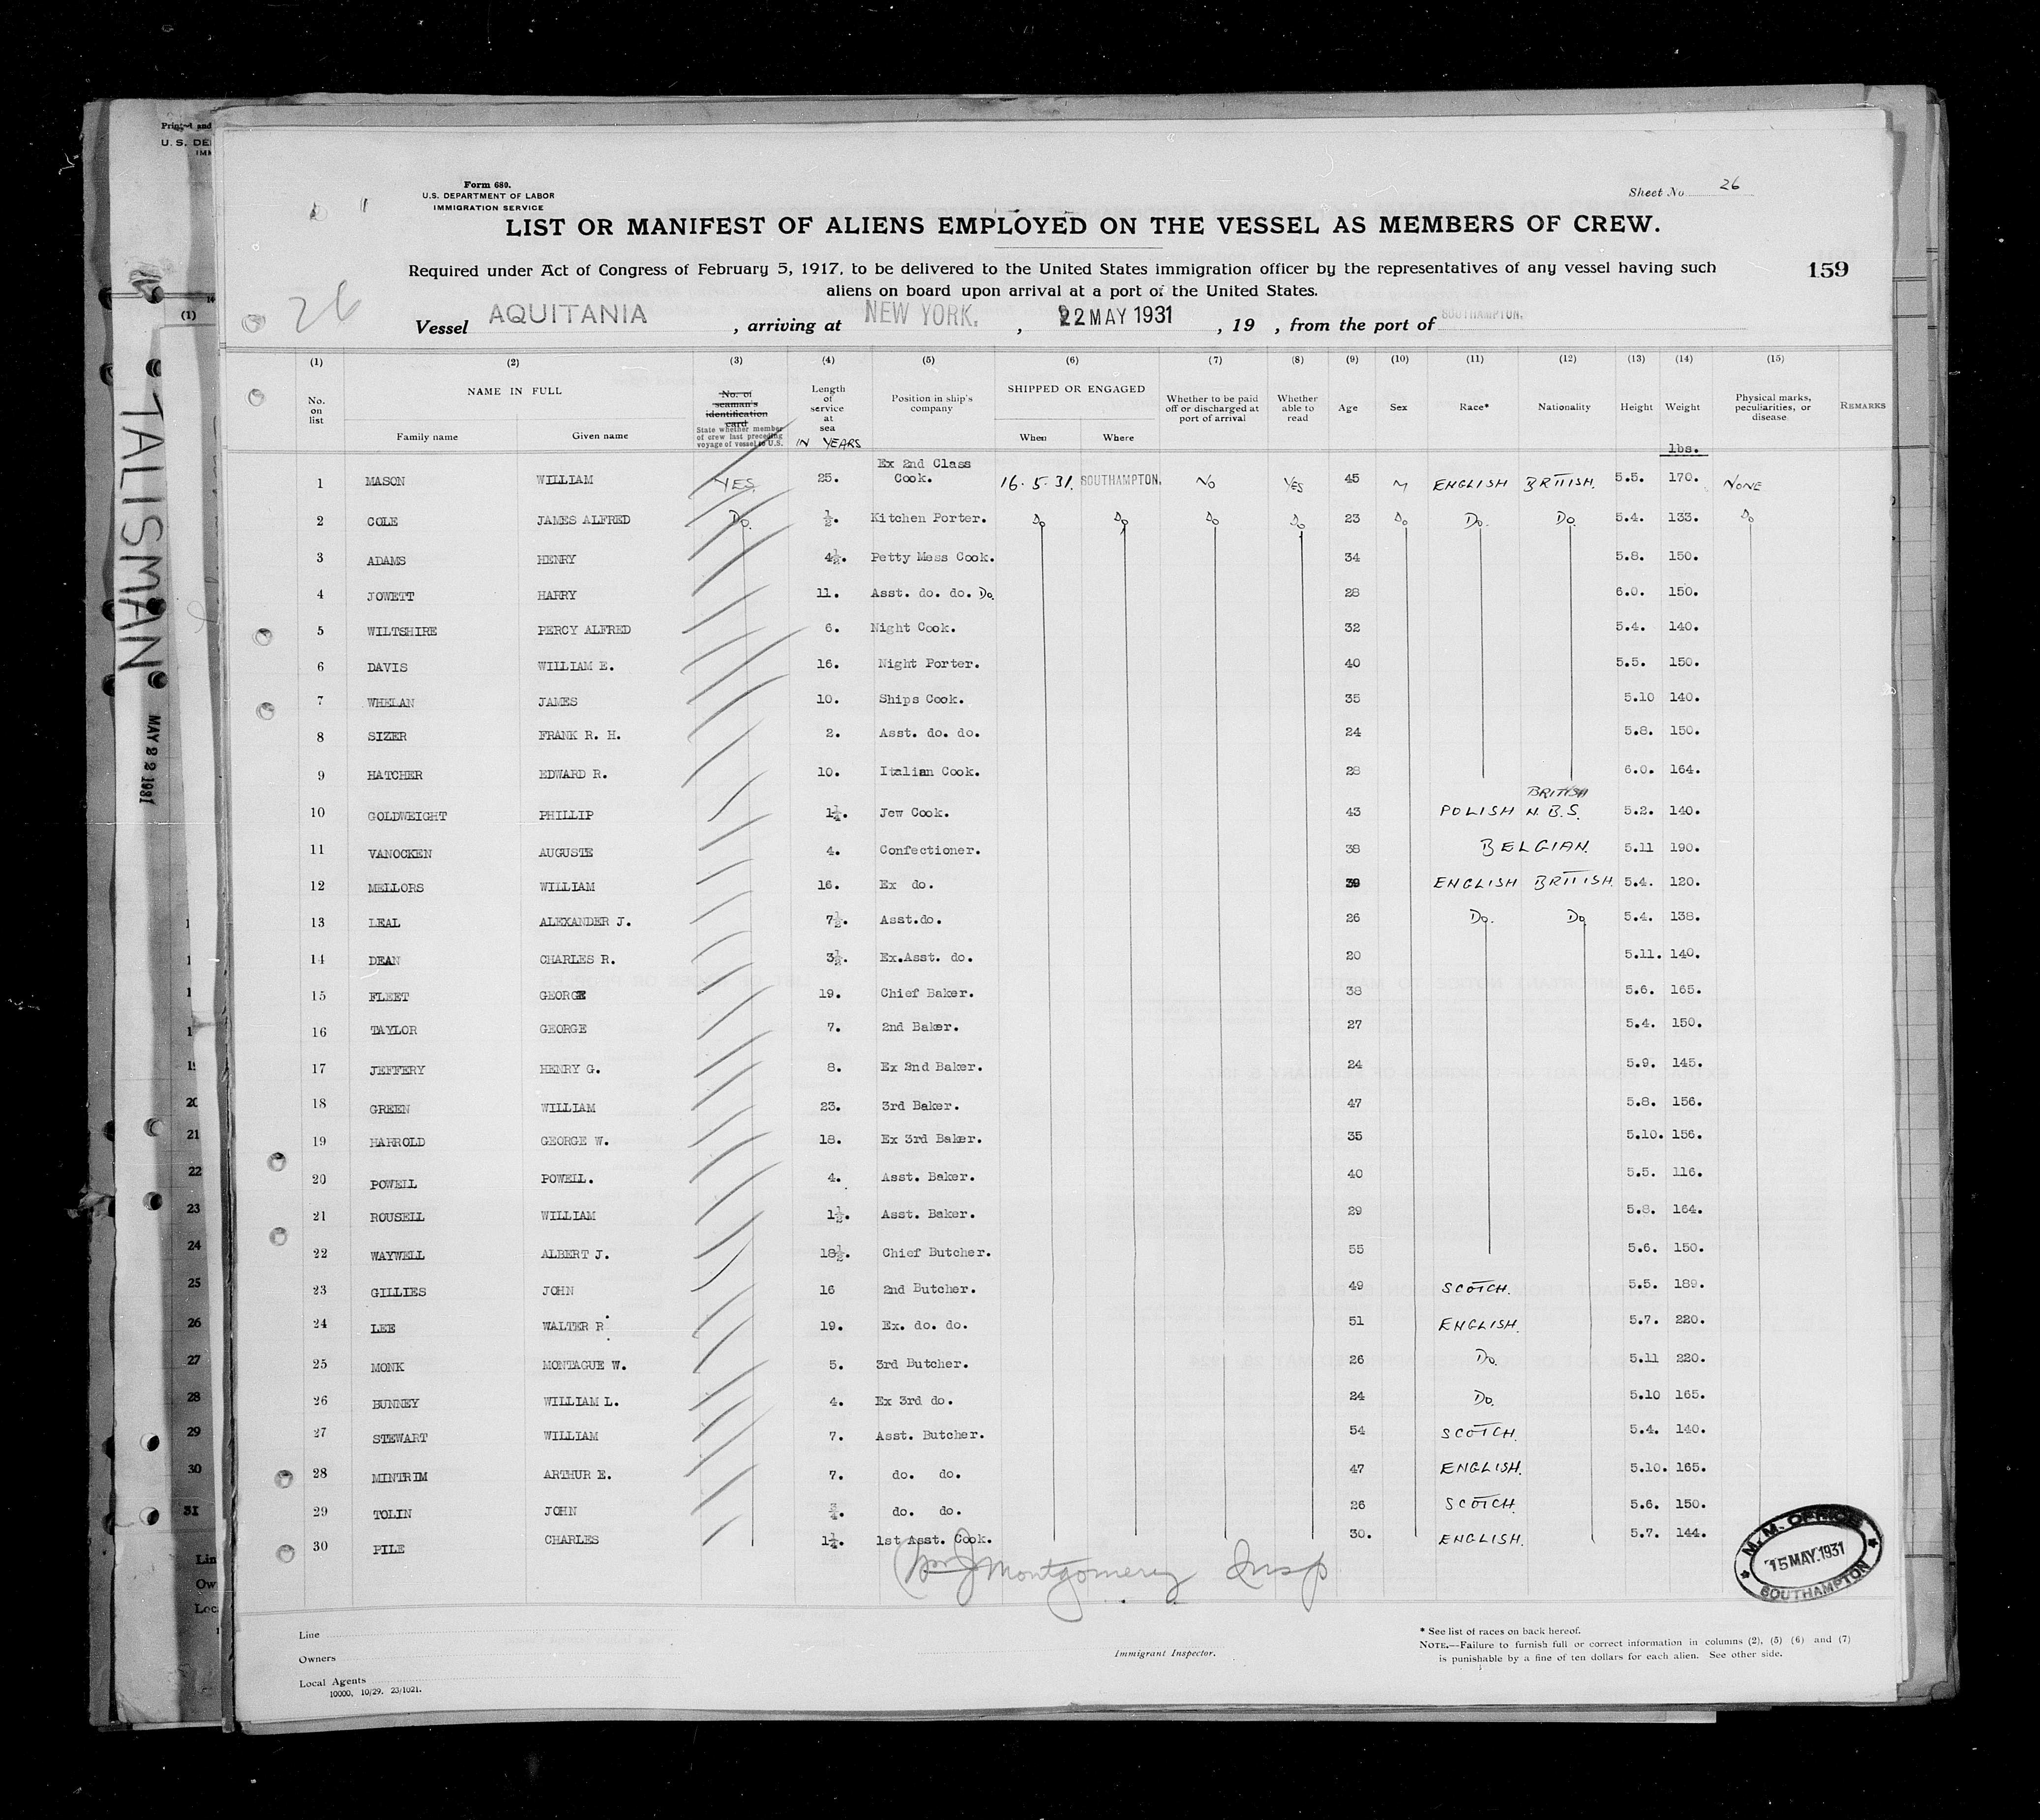 Form 689.
U.S. DEPARTMENT OF LABOR
IMMIGRATION SERVICE
Sheet No. 26
LIST OR MANIFEST OF ALIENS EMPLOYED ON THE VESSEL AS MEMBERS OF CREW.
Required under Act of Congress of February 5, 1917, to be delivered to the United States immigration officer by the representatives of any vessel having such
aliens on board upon arrival at a port of the United States.
159
26
Vessel AQUITANIA, arriving at NEW YORK., 22 MAY 1931, 19 , from the port of SOUTHAMPTON.
(1) (2) (3) (4) (5) (6) (7) (8) (9) (10) (11) (12) (13) (14) (15)
No. on list
NAME IN FULL
Family name Given name
No. of seaman's identification card
State whether member of crew last preceding voyage of vessel to U.S.
Length of service at sea
IN YEARS
Position in ship's company
SHIPPED OR ENGAGED
When Where
Whether to be paid off or discharged at port of arrival
Whether able to read
Age
Sex
Race*
Nationality
Height
Weight
lbs.
Physical marks, peculiarities, or disease.
REMARKS
1 MASON WILLIAM YES 25. Ex 2nd Class Cook. 16.5.31. SOUTHAMPTON. NO YES 45 M ENGLISH BRITISH. 5.5. 170. NONE
2 COLE JAMES ALFRED Do. ½. Kitchen Porter. Do Do Do Do 23 Do Do. Do. 5.4. 133. Do
3 ADAMS HENRY 4½. Petty Mess Cook. 34 5.8. 150.
4 JOWETT HARRY 11. Asst. do. do. Do. 28 6.0. 150.
5 WILTSHIRE PERCY ALFRED 6. Night Cook. 32 5.4. 140.
6 DAVIS WILLIAM E. 16. Night Porter. 40 5.5. 150.
7 WHELAN JAMES 10. Ships Cook. 35 5.10 140.
8 SIZER FRANK R. H. 2. Asst. do. do. 24 5.8. 150.
9 HATCHER EDWARD R. 10. Italian Cook. 28 6.0. 164.
10 GOLDWEIGHT PHILLIP 1¼. Jew Cook. 43 POLISH BRITISH N.B.S. 5.2. 140.
11 VANOCKEN AUGUSTE 4. Confectioner. 38 BELGIAN. 5.11 190.
12 MELLORS WILLIAM 16. Ex do. 39 ENGLISH BRITISH. 5.4. 120.
13 LEAL ALEXANDER J. 7½. Asst.do. 26 Do. Do 5.4. 138.
14 DEAN CHARLES R. 3½. Ex.Asst. do. 20 5.11. 140.
15 FLEET GEORGE 19. Chief Baker. 38 5.6. 165.
16 TAYLOR GEORGE 7. 2nd Baker. 27 5.4. 150.
17 JEFFERY HENRY G. 8. Ex 2nd Baker. 24 5.9. 145.
18 GREEN WILLIAM 23. 3rd Baker. 47 5.8. 156.
19 HARROLD GEORGE W. 18. Ex 3rd Baker. 35 5.10. 156.
20 POWELL POWELL. 4. Asst. Baker. 40 5.5. 116.
21 ROUSELL WILLIAM 1½. Asst. Baker. 29 5.8. 164.
22 WAYWELL ALBERT J. 18½. Chief Butcher. 55 5.6. 150.
23 GILLIES JOHN 16 2nd Butcher. 49 SCOTCH. 5.5. 189.
24 LEE WALTER R. 19. Ex. do. do. 51 ENGLISH. 5.7. 220.
25 MONK MONTAGUE W. 5. 3rd Butcher. 26 Do. 5.11 220.
26 BUNNEY WILLIAM L. 4. Ex 3rd do. 24 Do. 5.10 165.
27 STEWART WILLIAM 7. Asst. Butcher. 54 SCOTCH. 5.4. 140.
28 MINTRIM ARTHUR E. 7. do. do. 47 ENGLISH. 5.10. 165.
29 TOLIN JOHN ¾. do. do. 26 SCOTCH. 5.6. 150.
30 PILE CHARLES 1¼. 1st Asst. Cook. 30. ENGLISH. 5.7. 144.
Wm J Montgomery Insp
M.M. OFFICE
15 MAY.1931
SOUTHAMPTON
Line
Owners
Local Agents
10000, 10/29. 23/1021.
Immigrant Inspector.
* See list of races on back hereof.
NOTE.—Failure to furnish full or correct information in columns (2), (5) (6) and (7)
is punishable by a fine of ten dollars for each alien. See other side.
Printed and
U. S. DE
IMM
(1)
TALISMAN
MAY 22 1931
20
21
22
23
24
25
26
27
28
29
30
31
Lin
Ow
Loc